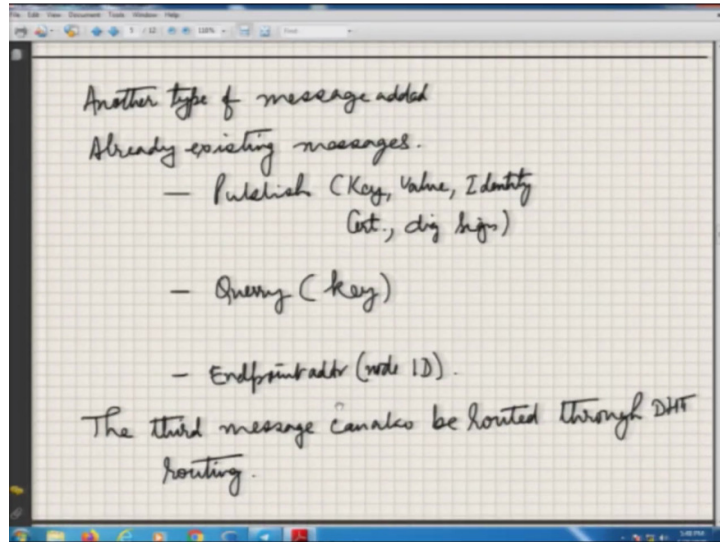 File Edit View Document Tools Window Help
/ 12
Find
Another type of message added
Already existing messages.
— Publish (Key, Value, Identity
Cert., dig signs)
— Querry (key)
— Endpoint addr (node ID).
The third message can also be routed through DHT
routing.
5:00 PM